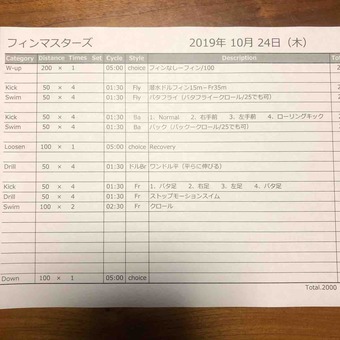 フィンマスターズ 2019年 10月 24日（木）
Category Distance Times Set Cycle Style Description
W-up 200 × 1 05:00 choice フィンなしーフィン/100
Kick 50 × 4 01:30 Fly 潜水ドルフィン15m－Fr35m
Swim 50 × 4 01:30 Fly バタフライ（バタフライークロール/25でも可）
Kick 50 × 4 01:30 Ba 1．Normal 2．右手前 3．左手前 4．ローリングキック
Swim 50 × 4 01:30 Ba バック（バックークロール/25でも可）
Loosen 100 × 1 05:00 choice Recovery
Drill 50 × 4 01:30 ドルBr ワンドル平（平らに伸びる）
Kick 50 × 4 01:30 Fr 1．バタ足 2．右足 3．左足 4．バタ足
Drill 50 × 4 01:30 Fr ストップモーションスイム
Swim 100 × 2 02:30 Fr クロール
Down 100 × 1 05:00 choice
Total.2000